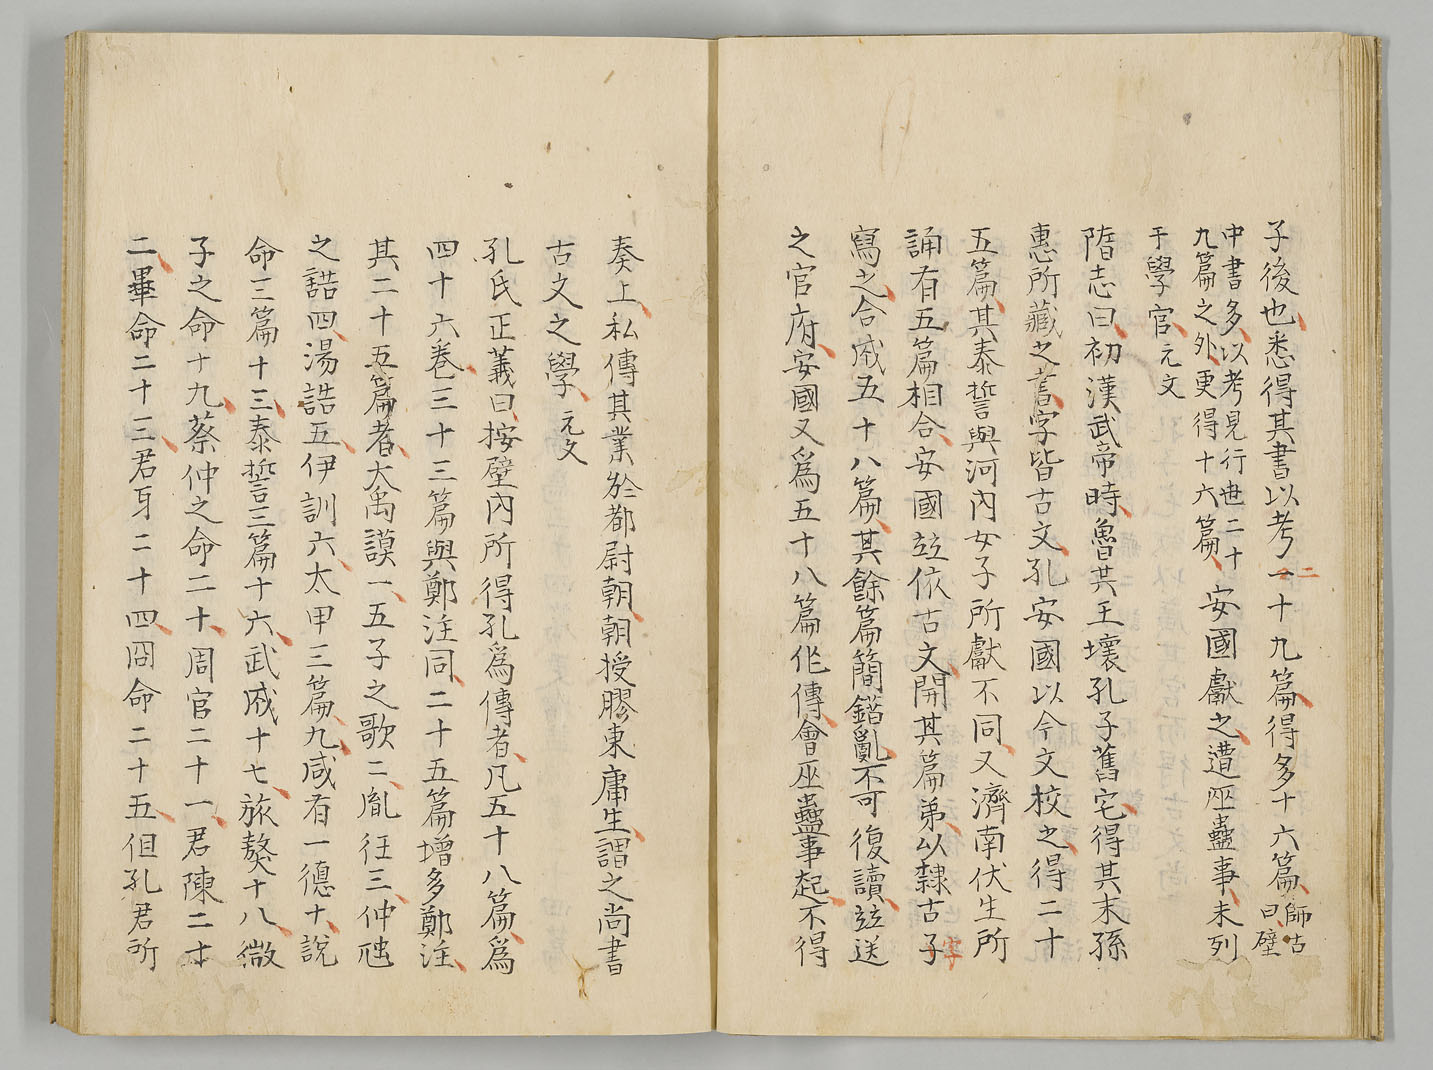 子後也悉得其書以考二十九篇得多十六篇師古曰壁
中書多以考見行世二十
九篇之外更得十六篇安國獻之遭巫蠱事未列
于學官元文
隋志曰初漢武帝時魯共王壞孔子舊宅得其末孫
惠所藏之書字皆古文孔安國以今文校之得二十
五篇其泰誓與河內女子所獻不同又濟南伏生所
誦有五篇相合安國竝依古文開其篇弟以隸古子字
寫之合成五十八篇其餘篇簡錯亂不可復讀竝送
之官府安國又爲五十八篇作傳會巫蠱事起不得
奏上私傳其業於都尉朝朝授膠東庸生謂之尚書
古文之學元文
孔氏正義曰按壁內所得孔爲傳者凡五十八篇爲
四十六卷三十三篇與鄭注同二十五篇增多鄭注
其二十五篇者大禹謨一五子之歌二胤征三仲虺
之誥四湯誥五伊訓六太甲三篇九咸有一德十說
命三篇十三泰誓三篇十六武成十七旅獒十八微
子之命十九蔡仲之命二十周官二十一君陳二十
二畢命二十三君牙二十四冏命二十五但孔君所